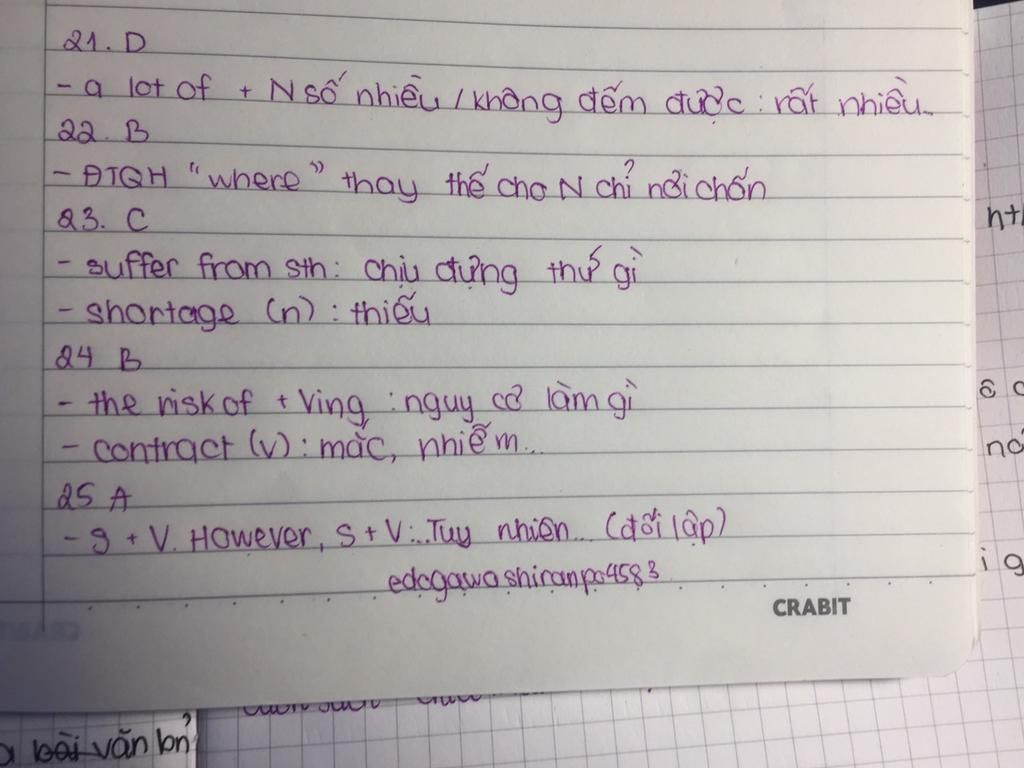 21. D
- a lot of + N số nhiều / không đếm được : rất nhiều..
22. B
- ĐTQH "where" thay thế cho N chỉ nơi chốn
23. C
- suffer from sth: chịu đựng thứ gì
- shortage (n) : thiếu
24 B
- the risk of + Ving : nguy cơ làm gì
- contract (v) : mắc, nhiễm...
25 A
- S + V. However, S + V:...Tuy nhiên... (đối lập)
edogawashiranpo4583
CRABIT
bài văn bn